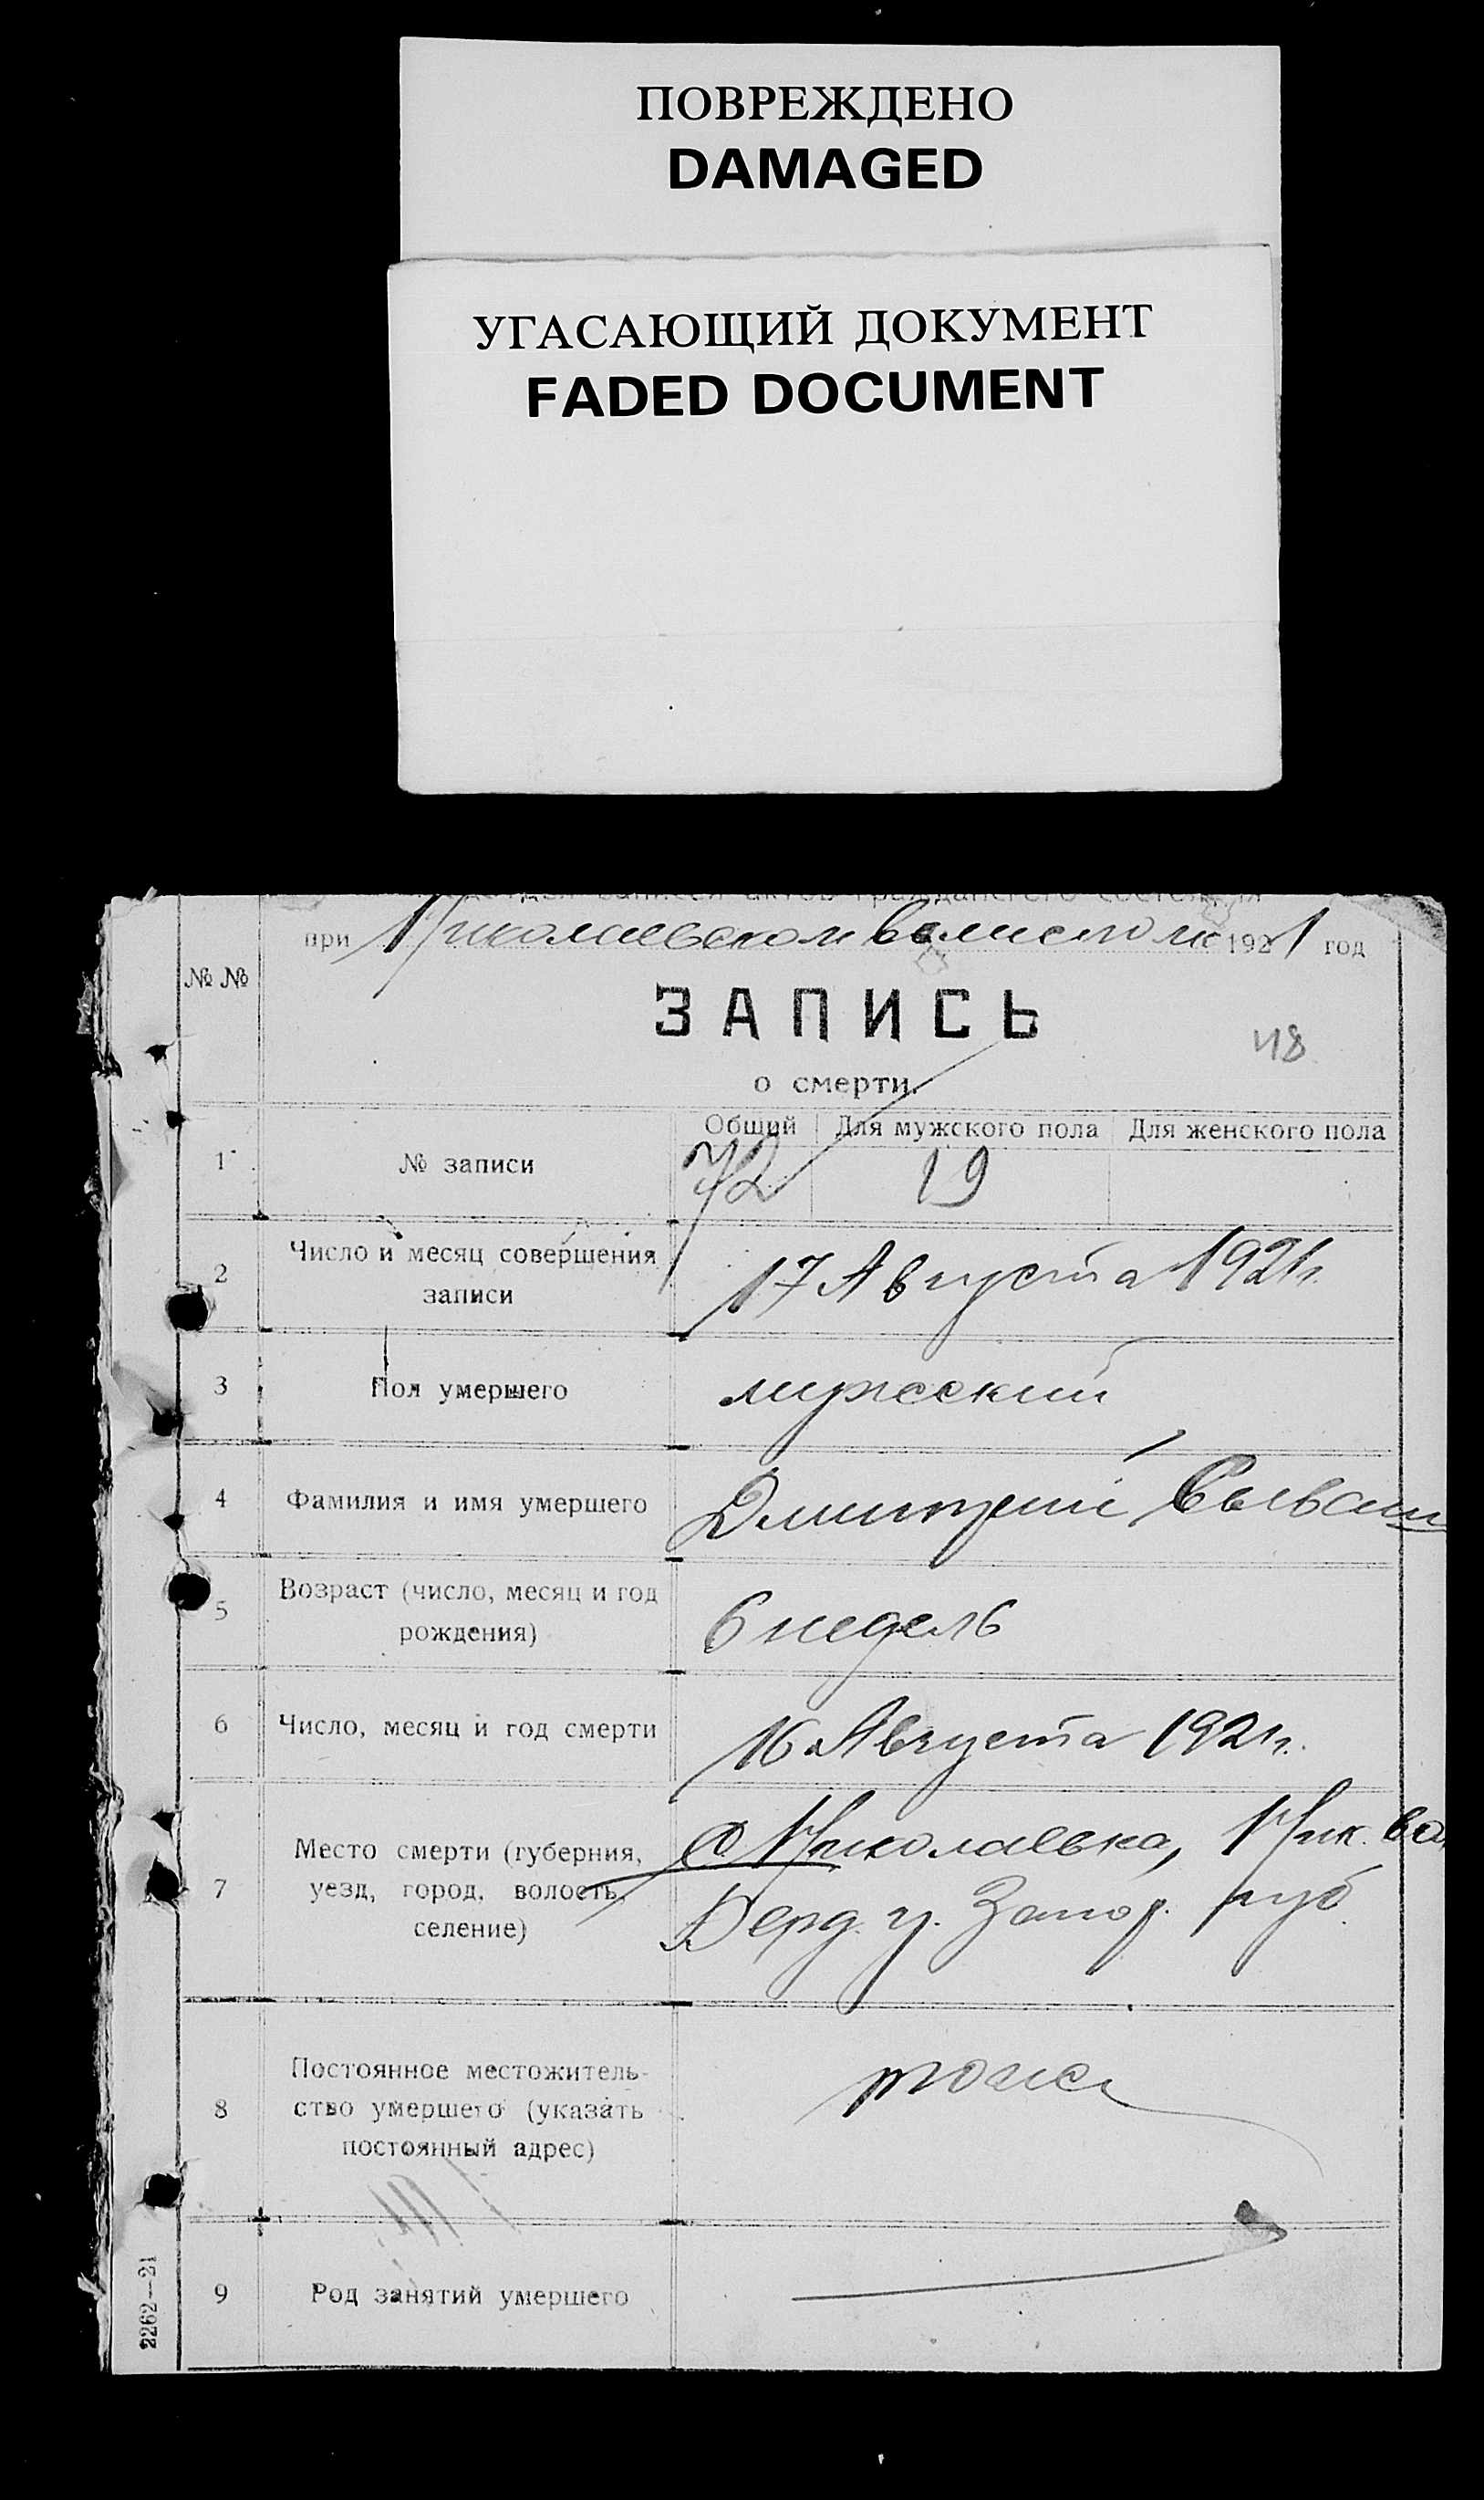 ПОВРЕЖДЕНО
DAMAGED
УГАСАЮЩИЙ ДОКУМЕНТ
FADED DOCUMENT
записей актов гражданского состояния
при Николаевском 1921 год
№ №
ЗАПИСЬ
48
о смерти.
Общий Для мужского пола Для женского пола
1 № записи 72 19
2 Число и месяц совершения
записи 17 Августа 1921 г.
3 Пол умершего мужеский
4 Фамилия и имя умершего Дмитрий
5 Возраст (число, месяц и год
рождения) 6 недель
6 Число, месяц и год смерти 16 Августа 1921 г.
7 Место смерти (губерния,
уезд, город, волость,
селение)
с Николаевка, Ник. во
Берд. у. Запор. губ.
8 Постоянное местожитель-
ство умершего (указать
постоянный адрес)
тоже
9 Род занятий умершего
2262—21